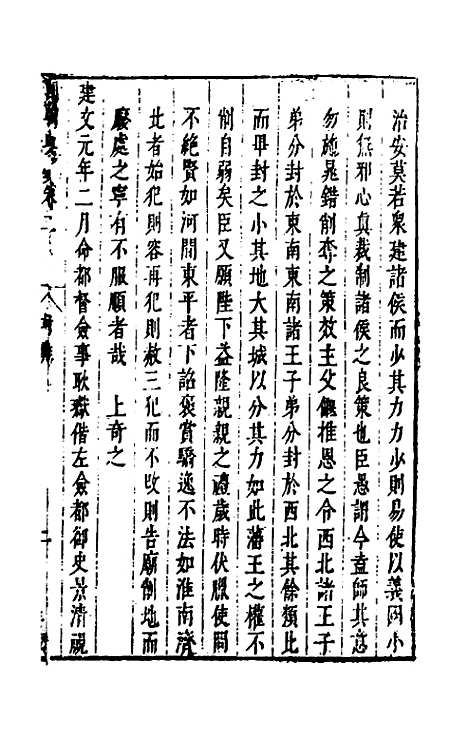 治安莫若衆建諸侯而少其力力少則易使以義國小
則無邪心真裁制諸侯之良策也臣愚謂今宜師其意
勿施晁錯削奪之策效主父偃推恩之令西北諸王子
弟分封於東南東南諸王子弟分封於西北其餘類比
而畢封之小其地大其城以分其力如此藩王之權不
削自弱矣臣又願陛下益隆親親之禮歲時伏臘使問
不絕賢如河間東平者下詔褒賞驕逸不法如淮南濟
北者始犯則容再犯則赦三犯而不改則告廟削地而
廢處之寧有不服順者哉 上奇之
建文元年二月命都督僉事耿瓛偕左僉都御史景清視